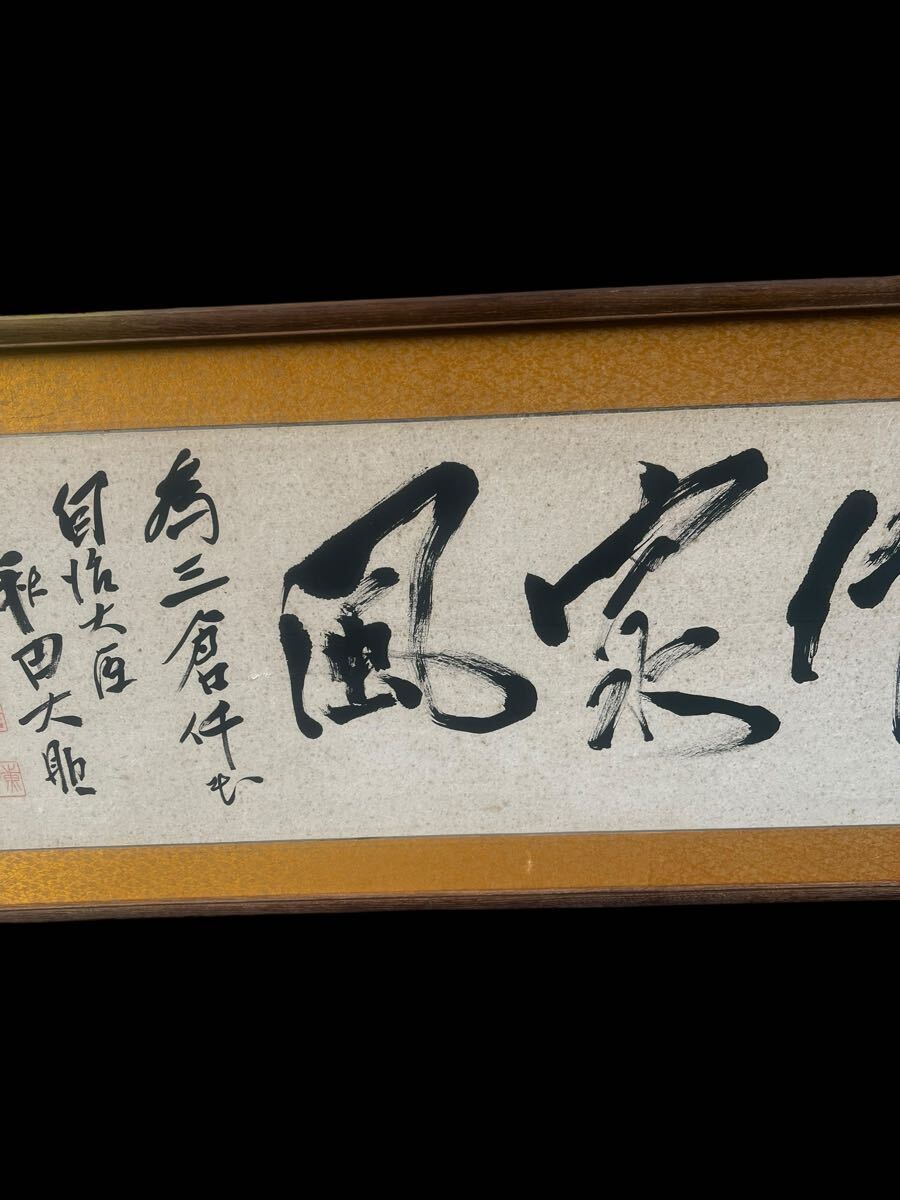 家風
為三倉仟
自治大臣
秋田大助